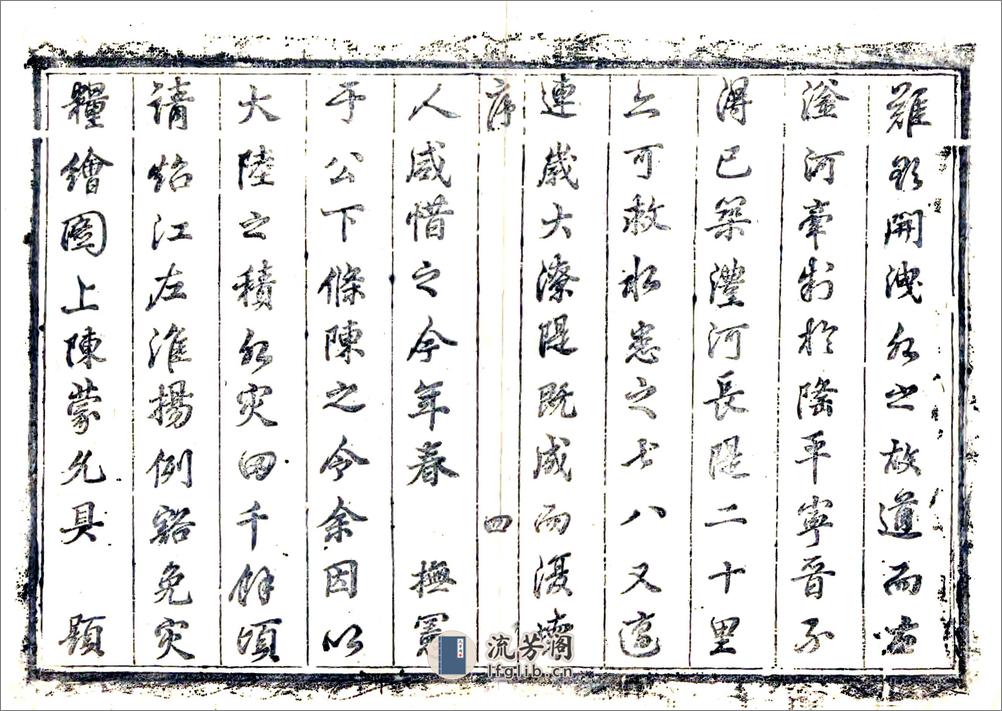 難開洩水之故道而
滏河牽制於隆平寧晉不
得已築灃河長隄二十里
可救水患之七八又適
連歲大潦隄既成而潰
序 四
人咸惜之今年春 撫憲
于公下條陳之令余因以
大陸之積水災田千餘頃
請炤江左淮揚例豁免災
糧繪圖上陳蒙允具 題
流芳阁
lfglib.cn